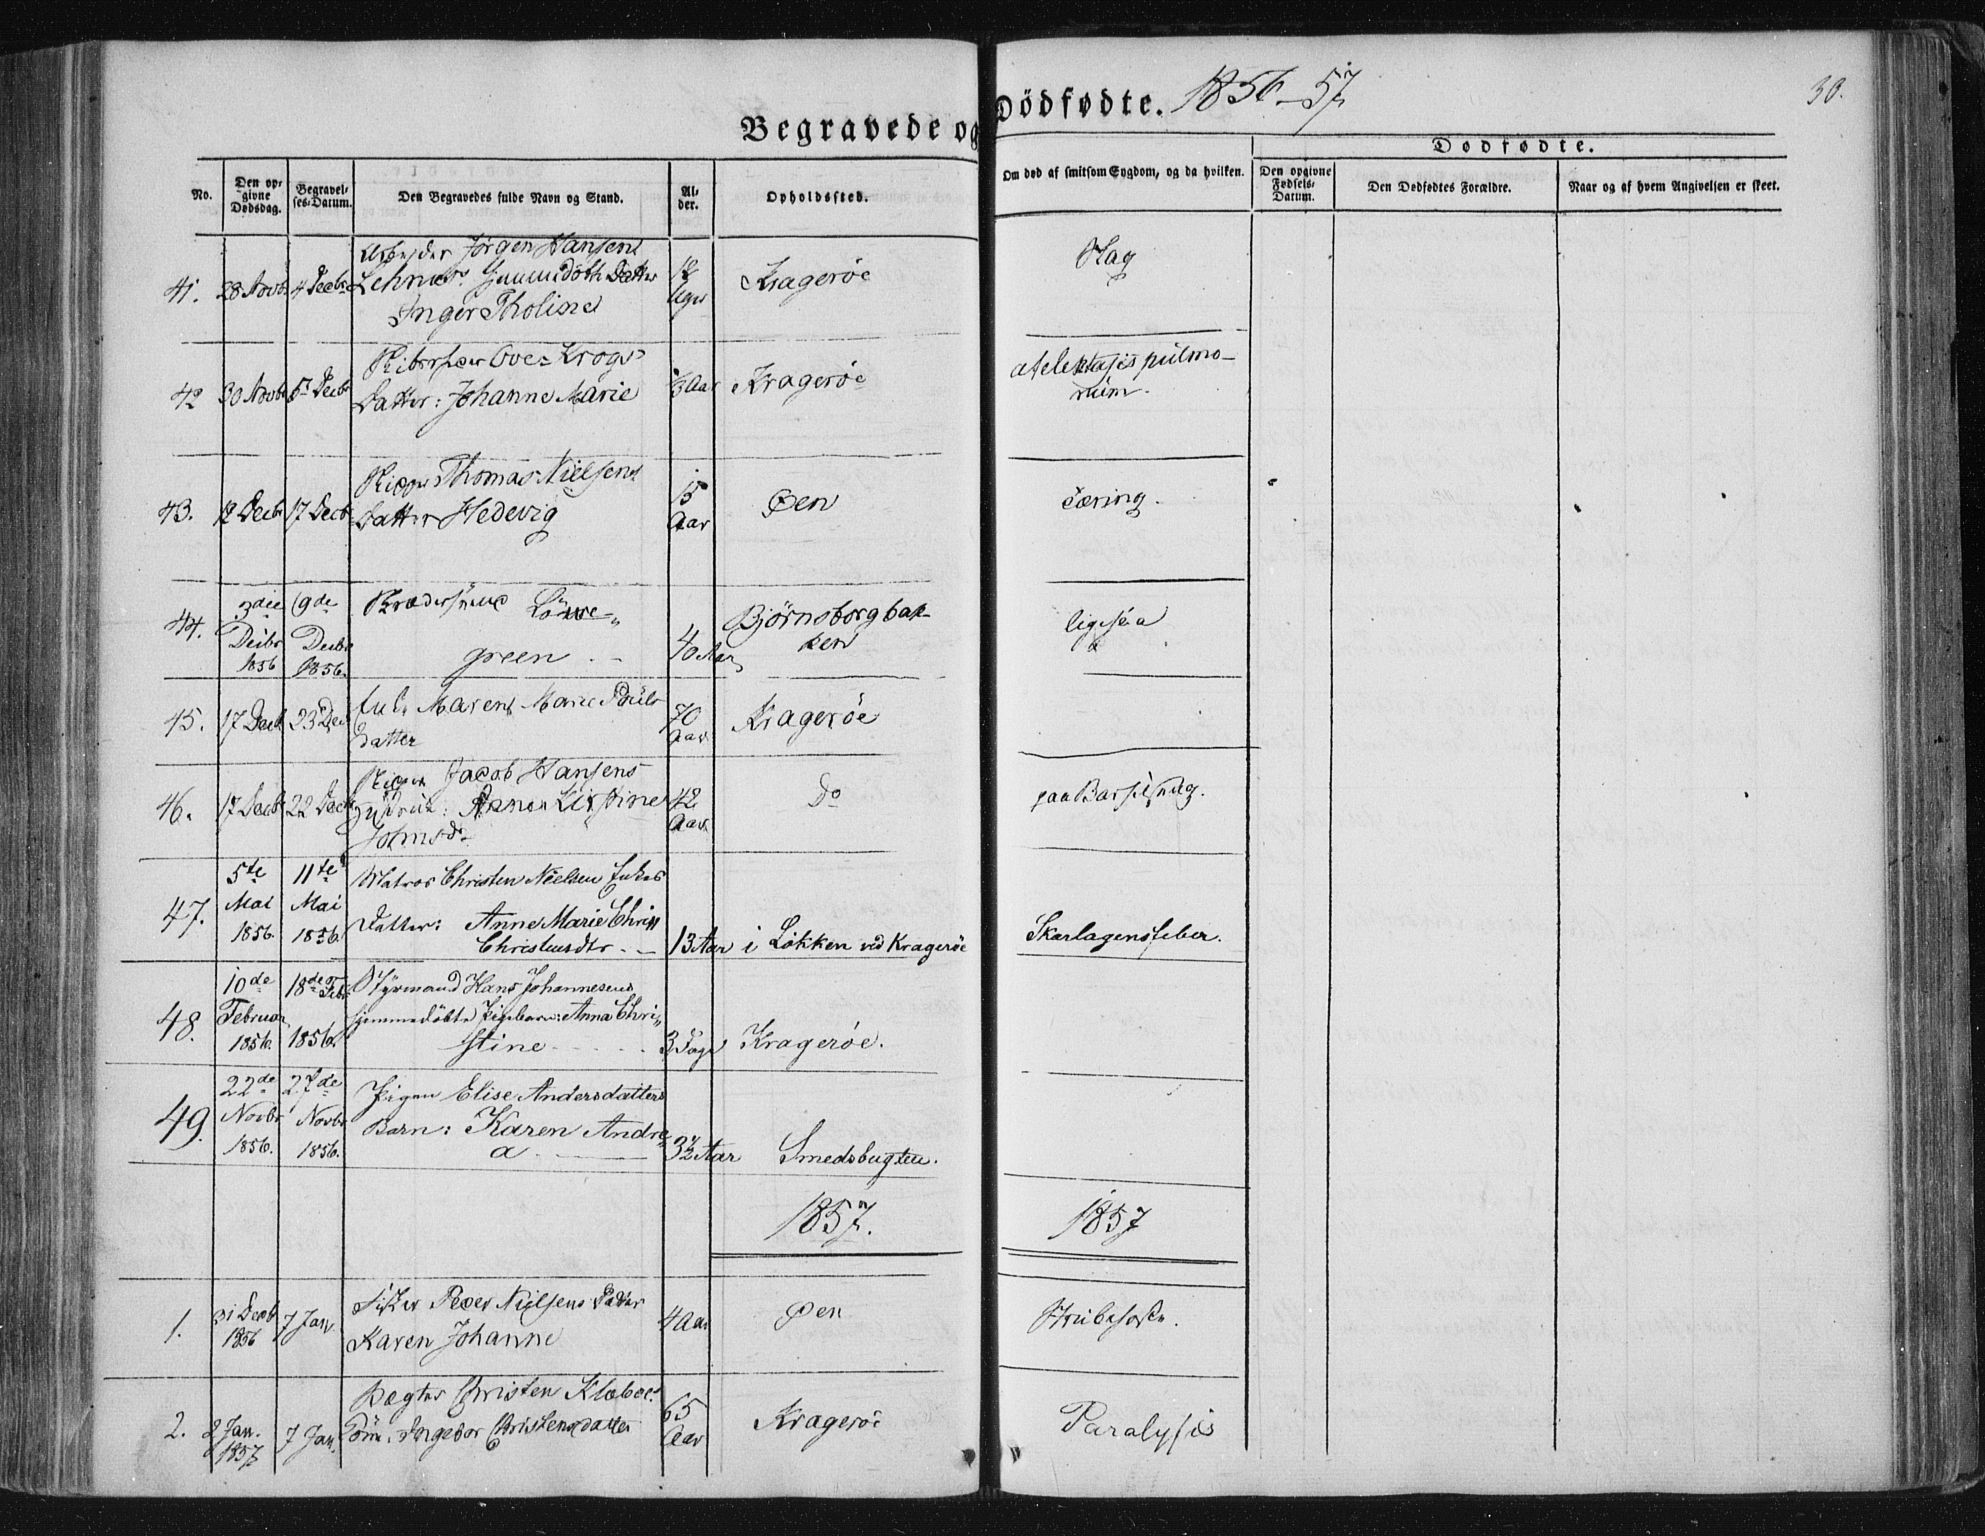 Begravede og Dödfødte. 1856-57
30.
No.
Den op-
givne
Dødsdag.
Begravel-
ses-Datum.
Den Begravedes fulde Navn og Stand.
Al-
der.
Opholdssted.
Om død af smitsom Sygdom, og da hvilken.
Dødfødte.
Den opgivne
Fødsels-
Datum.
Den Dødfødtes Forældre.
Naar og af hvem Angivelsen er skeet.
41. 28 Novbr 4 Decbr
Arbeider Jörgen Hansens
Datter
Inger Tholine
12
Uger
Kragerøe
42 30 Novbr 5 Decbr
Ove Krogs
Datter: Johanne Marie
Aar
Kragerøe
atelektasis pulmo-
num.
43. 12 Decbr 17 Decbr
Thomas Nielsens
Datter Hedevig
15
Aar
Øen
tæring.
44.
3die
Decbr
1856
19de
Decbr
1856.
green
40 Aar
Björnsborgbak-
ken
ligesaa
45. 17 Decbr 23 Dec
Maren Marie Pouls
datter
70
Aar
Kragerøe
46. 17 Decbr 22 Decbr
Jacob Hansens
Hustrue: Anne Kirstine
Johnsdr
42
Aar
do
paa Barselseng.
47.
5te
Mai
1856.
11te
Mai
1856
Matros Christen Nielsen
Datter: Anne Marie Chri-
Christensdtr
13 Aar
i Lökken ved Kragerøe
Skarlagensfeber.
48.
10de
Februar
1856.
18de Feb
1856.
Styrmand Hans Johannesens
hjemmedöbte Pigebarn: Anna Chri-
stine
3 Dage
Kragerøe.
49.
22de
Novbr
1856.
27de
Novbr
1856.
Pigen Elise Andersdatters
Barn: Karen Andre-
a
3½ Aar
Smedsbugten.
1857.
1857
1.
31 Decbr
1856
7 Jan
Peder Nielsens Datter
Karen Johanne
4 Aar
Øen
Strubehoste.
2.
2 Jan.
1857
7 Jan.
Christen Klæboes
Ingebor Christensdatter
65
Aar
Kragerøe
Paralysis